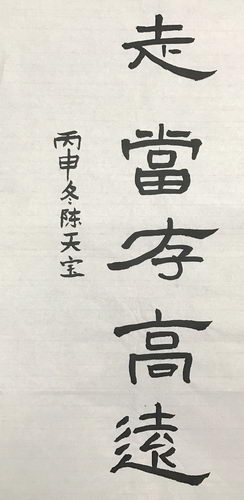 志當存高遠
丙申冬陈天宝